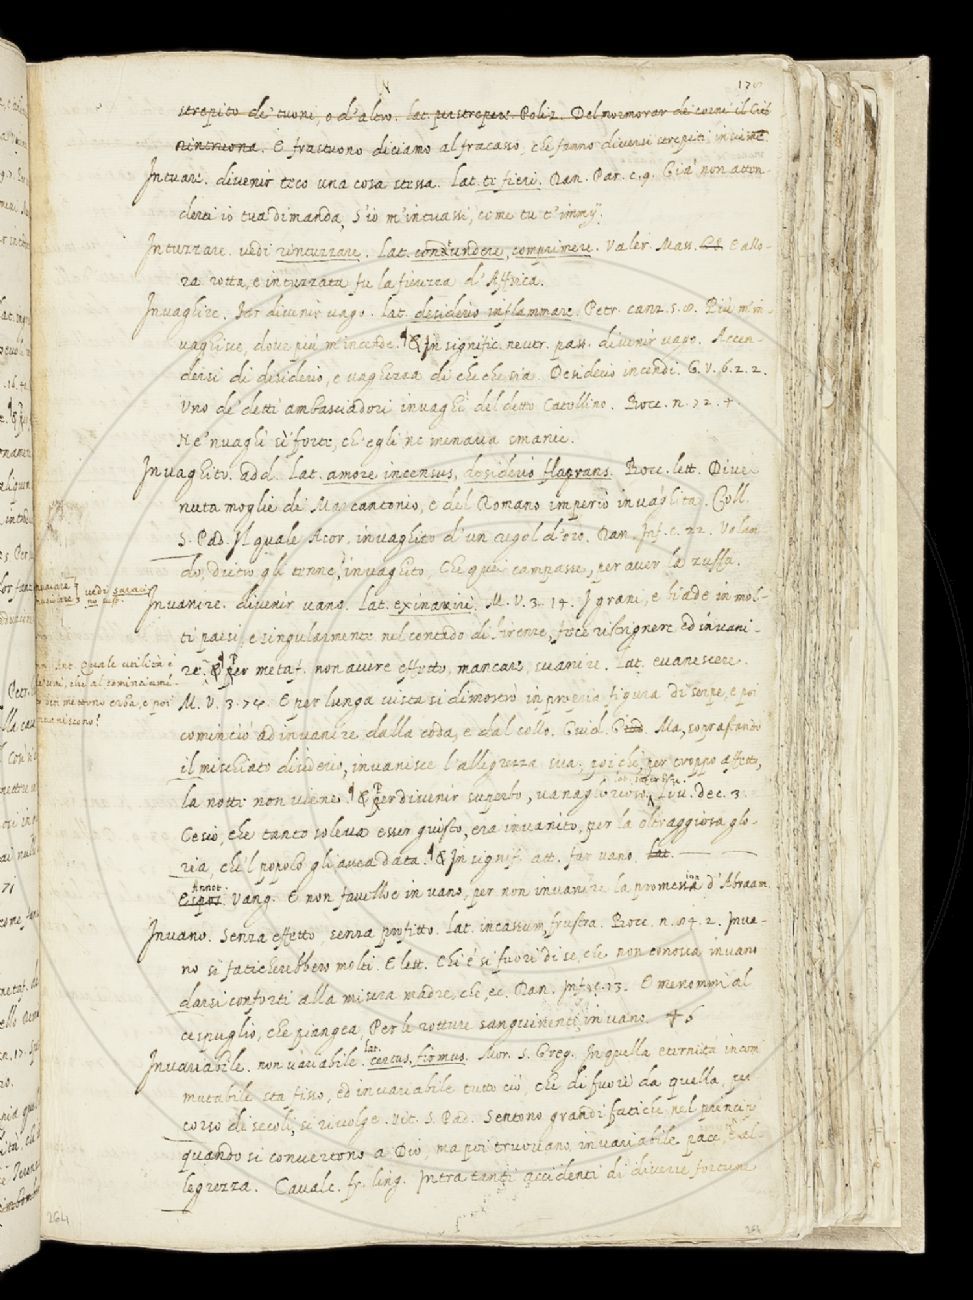 strepito de' tuoni, o d'altro. Lat. perstrepere. Poliz. Del mormorar de' corni il Ciel
rintruona. E frastuono diciamo al fracasso, che fanno diversi strepiti insieme
Intuare. divenir teco una cosa stessa. Lat. te fieri. Dan. Par. c. 9. Già non atten-
derei io tua dimanda, S'io m'intuassi, come tu t'immij.
Intuzzare. vedi rintuzzare. Lat. contundere, comprimere. Valer. Mass. E allo-
ra rotta, e intuzzata fu la fierezza d'Affrica.
Invaghire. Far divenir vago. Lat. desiderio inflammare. Petr. canz. 5. Più m'in-
vaghisce, dove più m'incende. & In signific. neutr. pass. divenir vago. Accen-
dersi di desiderio, e vaghezza di che che sia. Desiderio incendi. G. V. 6. 2. 2.
Uno de' detti ambasciadori invaghì del detto Catellino. Bocc. n. 72. 4.
Ne 'nvaghì sì forte, ch'egli ne menava smanie.
Invaghito. add. Lat. amore incensus, desiderio flagrans. Bocc. lett. Dive-
nuta moglie di Marcantonio, e del Romano imperio invaghita. Coll.
S. Pad. Il quale Acor. invaghito d'un regol d'oro. Dan. Inf. c. 22. Volan-
do, dietro gli tenne, invaghito, Che quei campasse, per aver la zuffa.
vedi svani-
no per.
Invanire. divenir vano. Lat. exinaniri. M. V. 3. 14. I grani, e biade in mol-
ti paesi, e singularmente nel contado di Firenze, fece ristrignere ed invani-
re. & per metaf. non avere effetto, mancare, svanire. Lat. evanescere.
Ant. Quale utilità è
che al cominciamé-
to ben mettono erba, e poi
invaniscono?
M. V. 3. 74. E per lunga vista si dimostrò in propria figura di serpe, e poi
cominciò ad invanire dalla coda, e dal collo. Guid. Giud. Ma, soprastando
il mischiato disiderio, invanisce l'allegrezza sua; poi che, per troppo affetto,
la notte non viene. & per divenir superbo, vanaglorioso. Liv. dec. 3.
Cesio, che tanto soleva esser giusto, era invanito, per la oltraggiosa glo-
ria, che'l popolo gli avea data. & In signif. att. far vano. Lat.
Annot. Vang. E non favelloe in vano, per non invanire la promessione d'Abraam
Invano. Senza effetto, senza profitto. Lat. incassum, frustra. Bocc. n. 84. 2. Inva-
no si faticherebbero molti. E lett. Chi è sì fuori di se, che non conosca invano
darsi conforti alla misera madre, che, ec. Dan. Inf. 13. E menommi al
cespuglio, che piangea, Per le rotture sanguinenti, in vano. + 6
Invariabile. non variabile. Lat. certus, firmus. Mor. S. Greg. In quella eternità incom-
mutabile sta fisso, ed invariabile tutto ciò, che di fuori da quella, per
corso di secoli, si rivolge. Vit. S. Pad. Sentono grandi fatiche nel principio
quando si convertono a Dio, ma poi truovano invariabile pace, e al-
legrezza. Cavalc. fr. ling. Intra tanti accidenti di diverse fortune
264